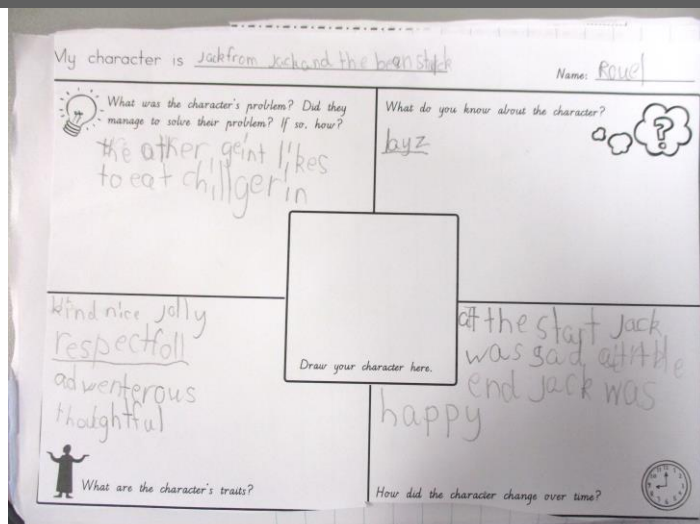 My character is Jack from Jack and the bean stalk
Name: Rouel
What was the character's problem? Did they
manage to solve their problem? If so, how?
the other geint likes
to eat chillgerin
What do you know about the character?
layz
?
kind nice jolly
respectfoll
adwenterous
thoughtful
What are the character's traits?
Draw your character here.
at the start Jack
was sad at the
end Jack was
happy
How did the character change over time?